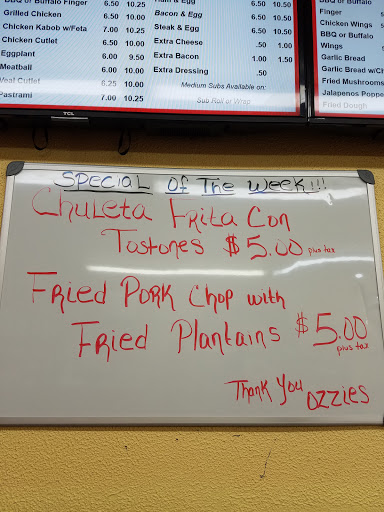 BBQ or Buffalo Finger 6.50 10.25
Grilled Chicken 6.50 10.25
Chicken Kabob w/Feta 7.00 10.25
Chicken Cutlet 6.50 10.00
Eggplant 6.00 9.50
Meatball 6.00 10.00
Veal Cutlet 6.25 10.00
Pastrami 7.00 10.25
& Egg 6.50 10.50
Bacon & Egg 6.50 10.50
Steak & Egg 6.50 10.50
Extra Cheese .50 1.00
Extra Bacon 1.00 1.50
Extra Dressing .50
Medium Subs Available on:
Sub Roll or Wrap
BBQ or Buffalo
Finger
Chicken Wings 5
BBQ or Buffalo
Wings
Garlic Bread
Garlic Bread w/Ch
Fried Mushrooms
Jalapenos Poppe
Fried Dough
TCL
SPECIAL OF THE WEEK!!!
Chuleta Frita Con
Tostones $5.00 plus tax
FRied PoRK Chop with
FRied Plantains $5.00
plus tax
Thank You Ozzies